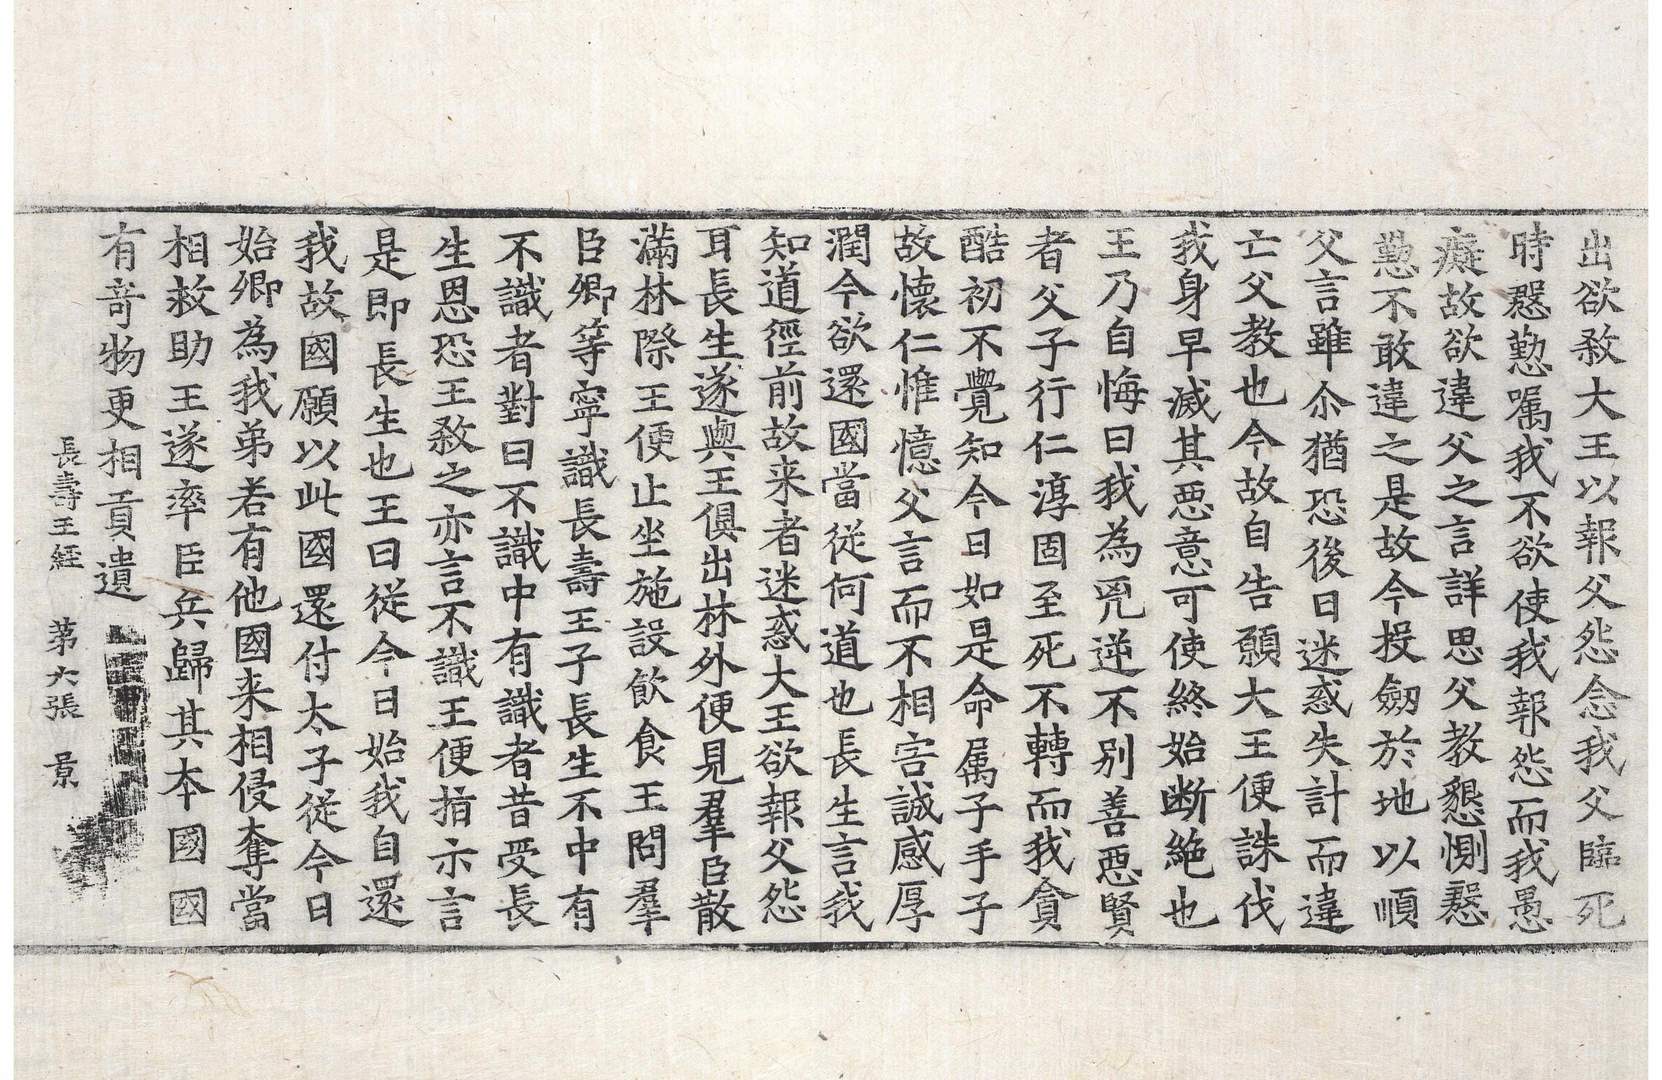 出欲敎大王以報父怨念我父臨死
時慇懃囑我不欲使我報怨而我愚
癡故欲違父之言詳思父教懇惻慇
懃不敢違之是故今投劒於地以順
父言雖尒猶恐後日迷惑失計而違
亡父教也今故自告願大王便誅伐
我身早滅其惡意可使終始断絶也
王乃自悔曰我為兇逆不別善惡賢
者父子行仁淳固至死不轉而我貪
酷初不覺知今日如是命属子手子
故懐仁惟憶父言而不相害誠感厚
潤今欲還國當從何道也長生言我
知道徑前故来者迷惑大王欲報父怨
耳長生遂與王俱出林外便見羣臣散
滿林際王便止坐施設飲食王問羣
臣卿等寧識長壽王子長生不中有
不識者對曰不識中有識者昔受長
生恩恐王敎之亦言不識王便指示言
是即長生也王曰従今日始我自還
我故國願以此國還付太子従今日
始卿為我弟若有他國来相侵奪當
相救助王遂率臣兵歸其本國國
有竒物更相貢遺
長壽王經　苐六張　景